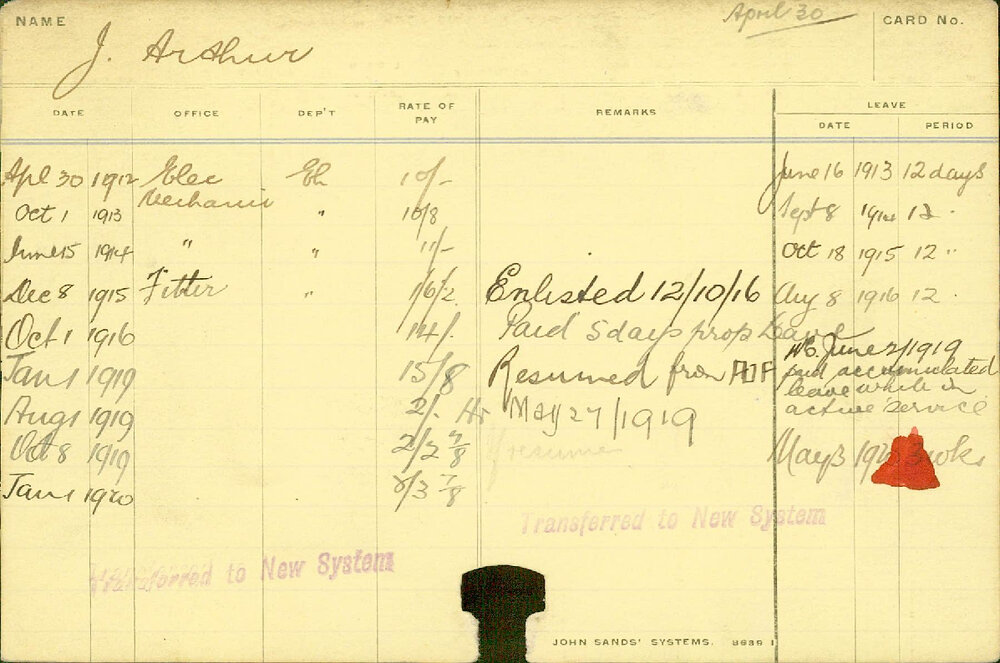 NAME J. Arthur April 30 CARD No.
DATE OFFICE DEP'T RATE OF PAY REMARKS LEAVE
DATE PERIOD
Apl 30 1912 Elec El 10/- June 16 1913 12 days
Mechanic
Oct 1 1913 " 10/8 Sept 8 1914 12 "
June 15 1914 " " 11/- Oct 18 1915 12 "
Dec 8 1915 Fitter " Enlisted 12/10/16 Aug 8 1916 12 "
Oct 1 1916 14/- Paid 5 days prop Leave
Jan 1 1919 15/8 Resumed from AIF June 2/1919
paid accumulated
leave while in
active service
Aug 1 1919 2/- Hr May 27/1919
Oct 8 1919 2/2 7/8 May 3 3 wks
Jan 1 1920 2/3 7/8
Transferred to New System
Transferred to New System
JOHN SANDS' SYSTEMS.